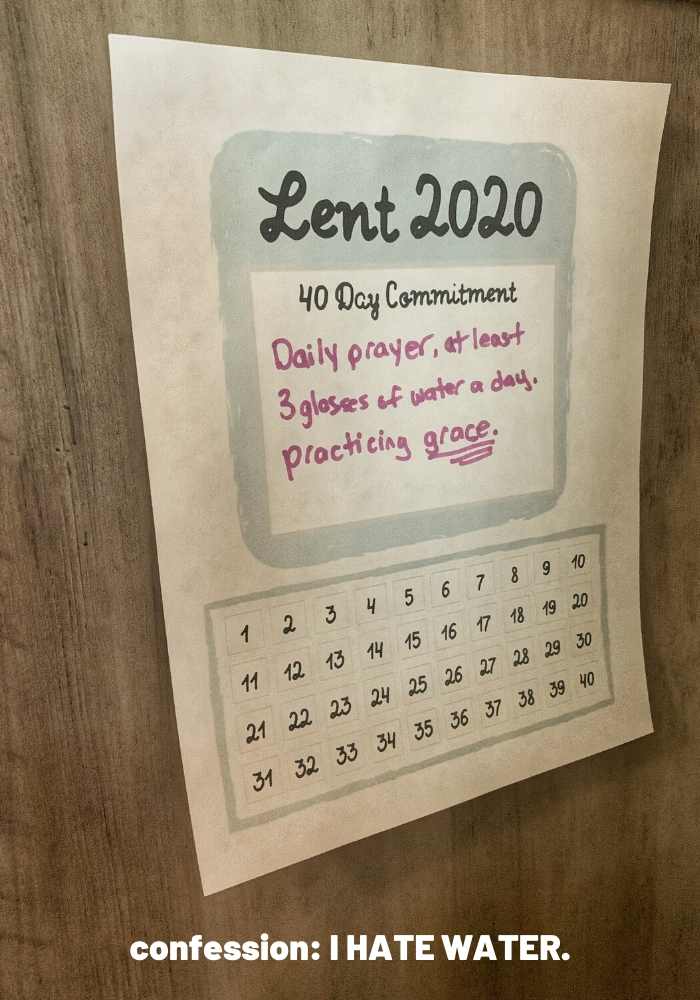 Lent 2020
40 Day Commitment
Daily prayer, at least
3 glasses of water a day.
practicing grace.
1 2 3 4 5 6 7 8 9 10
11 12 13 14 15 16 17 18 19 20
21 22 23 24 25 26 27 28 29 30
31 32 33 34 35 36 37 38 39 40
confession: I HATE WATER.